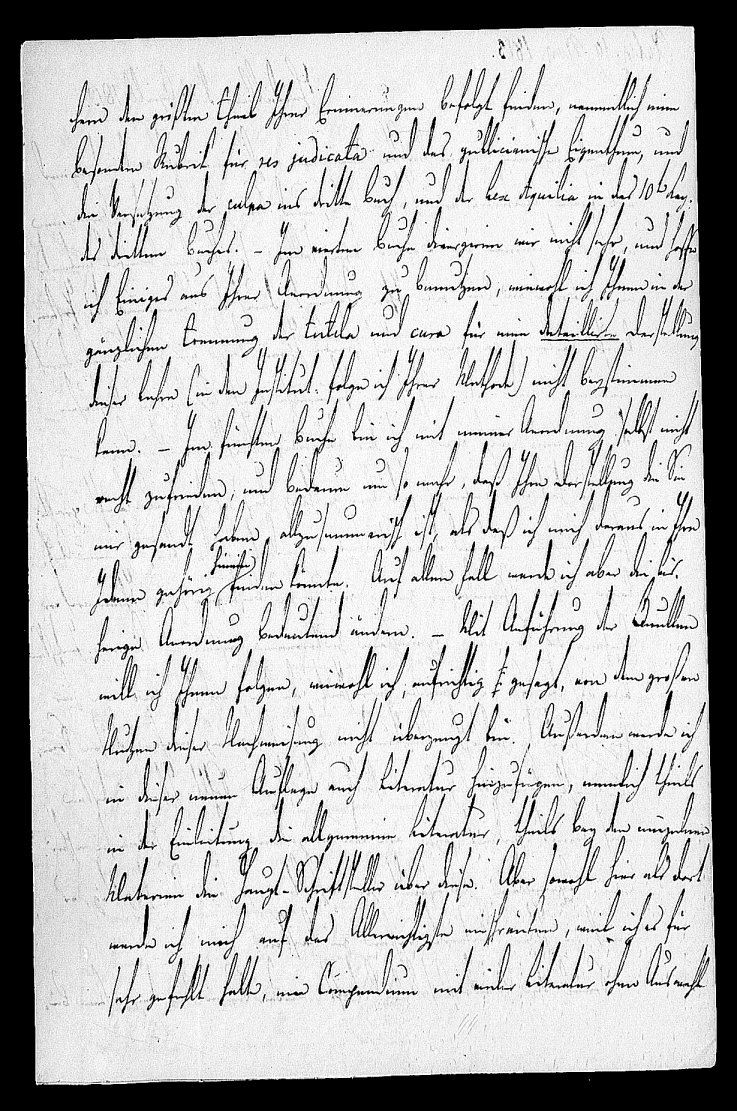 hein den größten Theil Ihrer Erinnerungen befolgt finden, namentlich eine
besondere Rubrik für res judicata und das publicianische Eigenthum, und
die Versetzung der culpa ins dritte Buch, und der lex Aquilia in das 10te Kap.
des dritten Buches. – Im vierten Buche divergiren wir nicht sehr, und hoffe
ich Einiges aus Ihrer Anordnung zu benutzen, wiewohl ich Ihnen in der
gänzlichen Trennung der tutela und cura für eine detaillirte Darstellung
dieser Lehre (in den Institut. folge ich Ihrer Methode) nicht beystimmen
kann. – Im fünften Buche bin ich mit meiner Anordnung selbst nicht
recht zufrieden, und bedaure um so mehr, daß Ihre Darstellung die Sie
mir gesandt haben allzu summarisch ist, als daß ich mich daraus in Ihre
Ideen gehörig hinein finden könnte. Auf allen Fall werde ich aber die bis-
herige Anordnung bedeutend ändern. – Mit Anführung der Quellen
will ich Ihnen folgen, wiewohl ich, aufrichtig gesagt, von dem großen
Nutzen dieser Nachweisung nicht überzeugt bin. Außerdem werde ich
in dieser neuen Auflage auch Literatur hinzufügen, nemlich theils
in der Einleitung die allgemeine Literatur, theils bey den einzelnen
Materien die Haupt-Schriftsteller über diese. Aber sowohl hier als dort
werde ich mich auf das Allerwichtigste einschränken, weil ich es für
sehr gefehlt halte, ein Compendium mit vieler Literatur ohne Auswahl